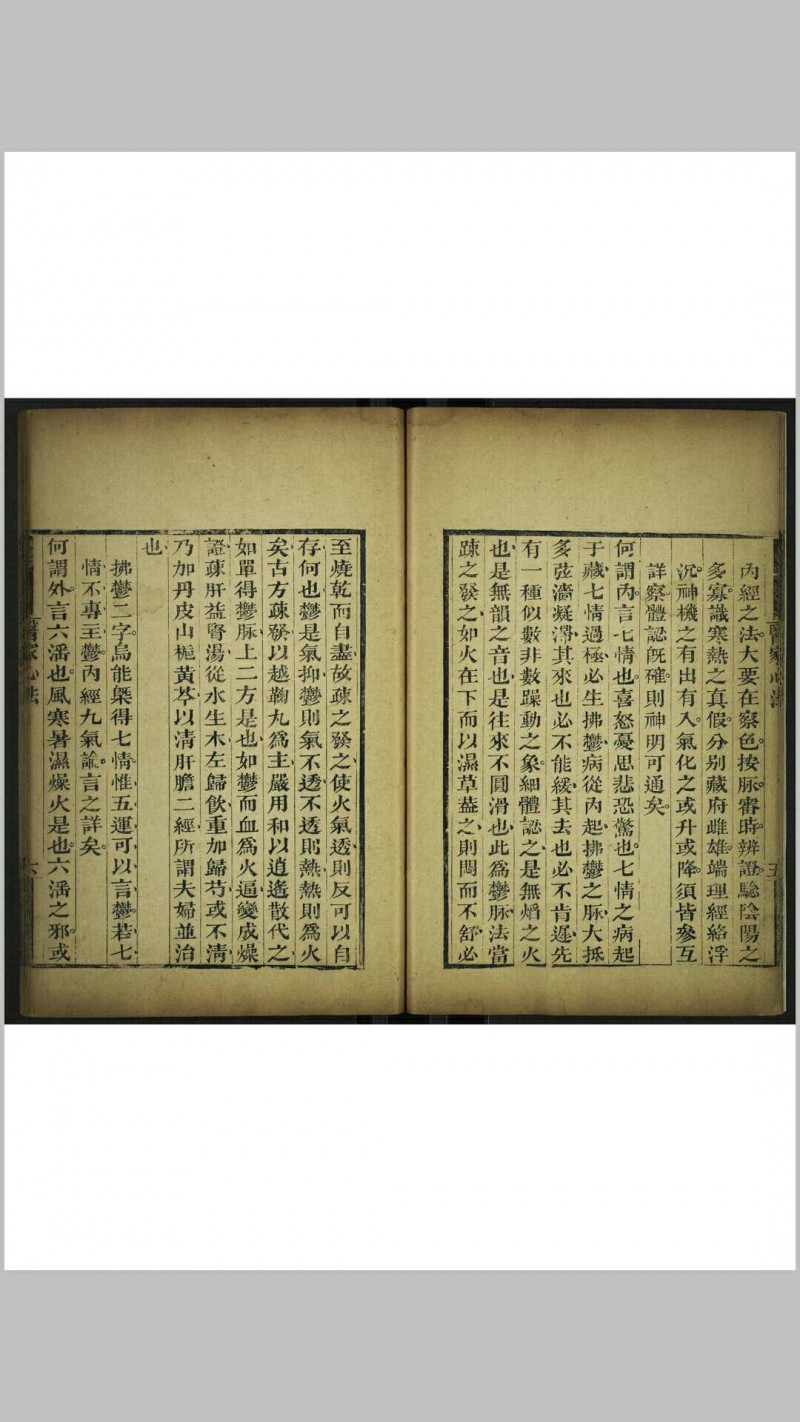 內經之法大要在察色按脉審時辨證騐陰陽之
多寡識寒熱之真假分别藏府雌雄端理經絡浮
沉神機之有出有入氣化之或升或降須皆參互
詳察體認旣確則神明可通矣
何謂內言七情也喜怒憂思悲恐驚也七情之病起
于藏七情過極必生拂鬱病從內起拂鬱之脉大抵
多弦濇凝滯其來也必不能緩其去也必不肯遲先
有一種似數非數躁動之象細體認之是無熖之火
也是無韻之音也是往來不圓滑也此為鬱脉法當
踈之發之如火在下而以濕草葢之則悶而不舒必
至燒乾而自盡故疎之發之使火氣透則反可以自
存何也鬱是氣抑鬱則氣不透不透則熱熱則為火
矣古方疎發以越鞠丸為主嚴用和以逍遙散代之
如單得鬱脉上二方是也如鬱而血為火逼變成燥
證疎肝益腎湯從水生木左歸飲重加歸芍或不清
乃加丹皮山梔黃芩以清肝膽二經所謂夫婦並治
也
拂鬱二字烏能槩得七情惟五運可以言鬱若七
情不專主鬱內經九氣論言之詳矣
何謂外言六淫也風寒暑濕燥火是也六淫之邪或
醫家心法
五
醫家心法
六